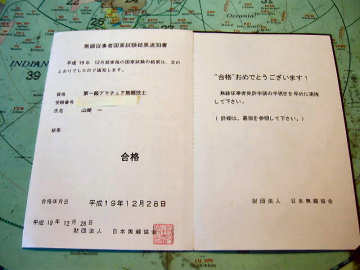 無線従事者国家試験結果通知書
平成19年 12月期実施の国家試験の結果は、次の
とおりでしたので通知します。
資格 第一級アマチュア無線技士
受験番号
氏名 山崎 一
結果
合格
合格年月日 平成19年12月28日
平成 19年 12月 28日
財団法人 日本無線協会
"合格"おめでとうございます!
無線従事者免許申請の手続きを早めに実施
して下さい。
(詳細は、裏面を参照して下さい。)
財団法人 日本無線協会
INDIAN
39
Oceania